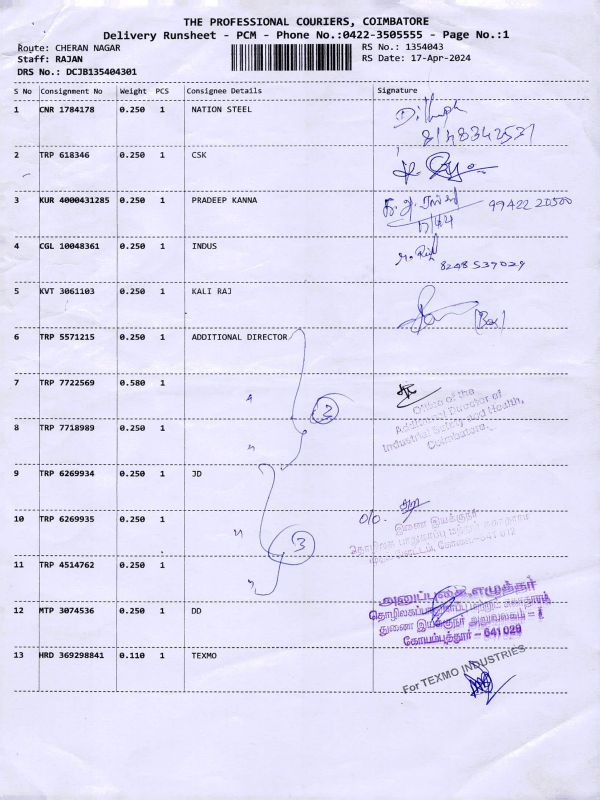 THE PROFESSIONAL COURIERS, COIMBATORE
Delivery Runsheet - PCM - Phone No.:0422-3505555 - Page No.:1
Route: CHERAN NAGAR RS No.: 1354043
Staff: RAJAN RS Date: 17-Apr-2024
DRS No.: DCJB135404301
S No Consignment No Weight PCS Consignee Details Signature
1 CNR 1784178 0.250 1 NATION STEEL
8148342531
2 TRP 618346 0.250 1 CSK
3 KUR 4000431285 0.250 1 PRADEEP KANNA 99422 20500
4 CGL 10048361 0.250 1 INDUS
8248 537029
5 KVT 3061103 0.250 1 KALI RAJ
6 TRP 5571215 0.250 1 ADDITIONAL DIRECTOR
7 TRP 7722569 0.580 1
Office of the
Additional Director of
Industrial Safety and Health,
Coimbatore.
8 TRP 7718989 0.250 1
9 TRP 6269934 0.250 1 JD
10 TRP 6269935 0.250 1
இணை இயக்குநர்
3
11 TRP 4514762 0.250 1
12 MTP 3074536 0.250 1 DD
துணை இயக்குநர் அலுவலகம் - I
கோயம்புத்தூர் - 641 028
13 HRD 369298841 0.110 1 TEXMO
For TEXMO INDUSTRIES